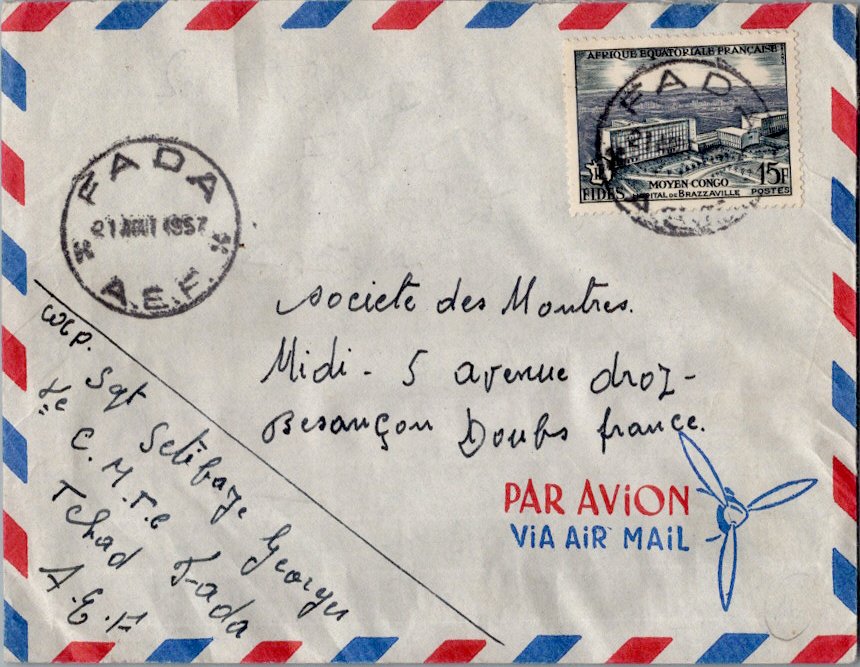 AFRIQUE EQUATORIALE FRANÇAISE
15F
FIDES
MOYEN CONGO
HOPITAL DE BRAZZAVILLE
15F
POSTES
FADA
FADA
21 AOUT 1957
A.E.F.
societe des Montres.
Midi - 5 avenue droz -
Besançon Doubs france.
PAR AViON
ViA AiR MAiL
Sgt Setèbaye Georges
C.M.T.e Fada
Tchad
A.E.F